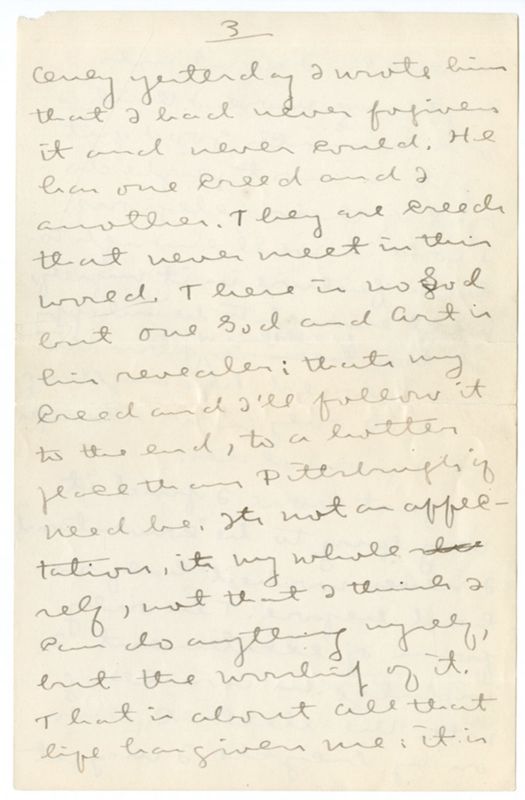 3
only yesterday I wrote him
that I had never forgiven
it and never could. He
has one creed and I
another. They are creeds
that never meet in this
world. There is no God
but one God and Art is
his revealer; thats my
creed and I'll follow it
to the end, to a hotter
place than Pittsburgh if
need be. Its not an affec-
tation, its my whole
self, not that I think I
can do anything myself,
but the worship of it.
That is about all that
life has given me; it is